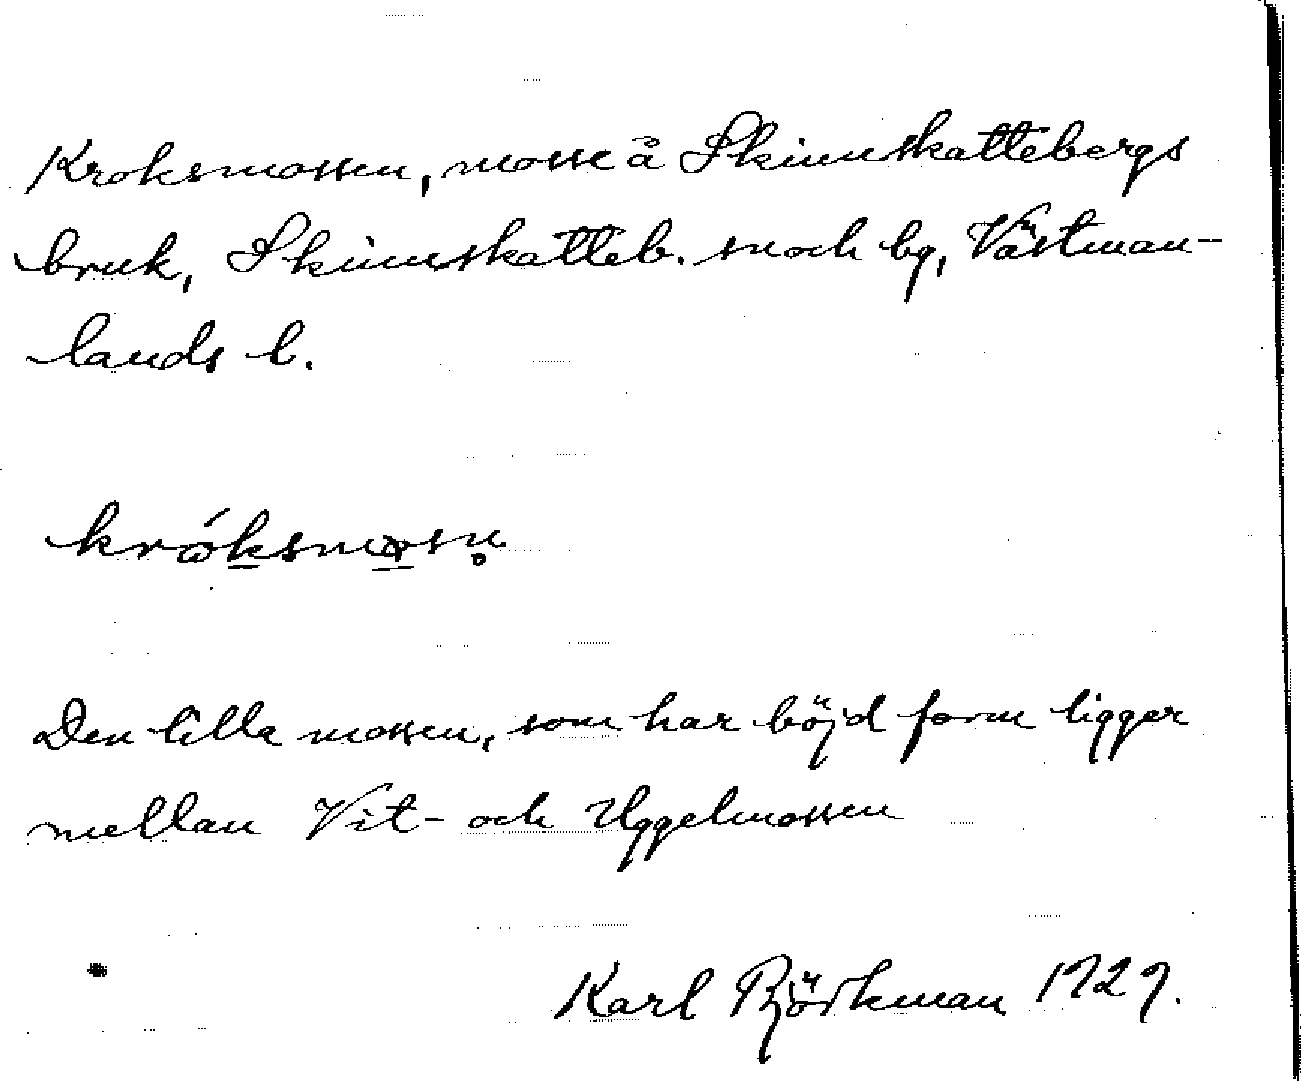 Kroksmossen, mosse å Skinnskattebergs
bruk, Skinnskatteb. sn och bg, Västman-
lands l.
króksmosn̥
Den lilla mossen, som har böjd form ligger
mellan Vit- och Uggelmossen
Karl Björkman 1929.